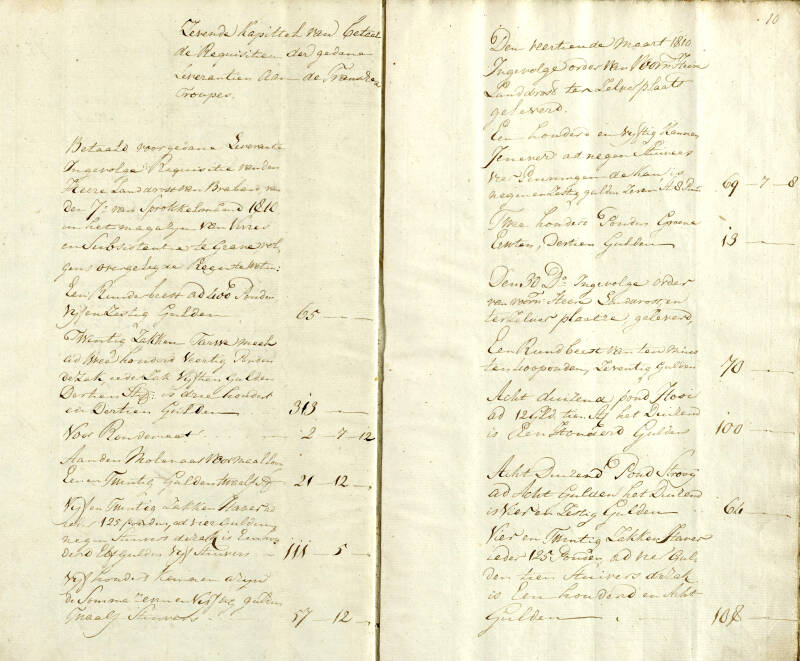 Zevende Kapittel van betaal
de Requisitien der gedane
Leverantien Aan de Fransche
Troupes.
Betaald voor gedane Leverantie
Ingevolge Requisitie van den
Heere Landdrost van Braband, van
den 7e van Sprokkelmaand 1810
in het magazijn van Vivres
en Subsistentie te Grave vol,
gens overgelegde Recepte
Een Runderbeest ad 400 Ponden
Vijf en Zestig Gulden 65 —
Twintig Zakken Tarwe meel
ad twee honderd Veertig Ponden
de zak ieder Zak Vijftien Gulden
Dertien St. is drie hondert
en Dertien Gulden 313 —
Voor 2 - 7 - 12
Aan den Molenaar voor maalloon
Een en Twintig Gulden twaalf St 21 - 12 -
Vijf en Twintig Zakken Haver
125 ponden, ad vier Gulden
negen Stuivers de zak is Een hon,
derd Elf Gulden Vijf Stuivers 111 - 5 -
Vijf honderd kannen azijn
de Somma zeven en Vijftig gulden
Twaalf Stuivers 57 - 12 -
10
Den veertiende Maart 1810
Ingevolge order van Voorn: Heer
Landdrost ter Zelver plaats
geleverd.
Een hondert en Vijftig Kannen
Jenever ad negen Stuivers
Vier Penningen de kan is
negen en Zestig gulden Zeven St. 8 Pen 69 - 7 - 8
Twee honderd Ponden Groene
Erwten, Dertien Gulden 13 —
Den 30 Do Ingevolge order
van voorn: Heer Landdrost, en
ter Zelver plaatze geleverd,
Een Rund beest van ten mins
ten 400 ponden, Zeventig Gulden 70 —
Acht duizend pond Hooi
ad 12 Gld. tien St. het Duizend
is Een Honderd Gulden 100 —
Acht Duizend Pond Strooij
ad Acht Gulden het Duizend
is Vier en Zestig Gulden 64 —
Vier en Twintig Zakken Haver
ieder 125 Ponden ad vier Gul,
den tien Stuivers de zak
is Een honderd en Acht
Gulden 108 —